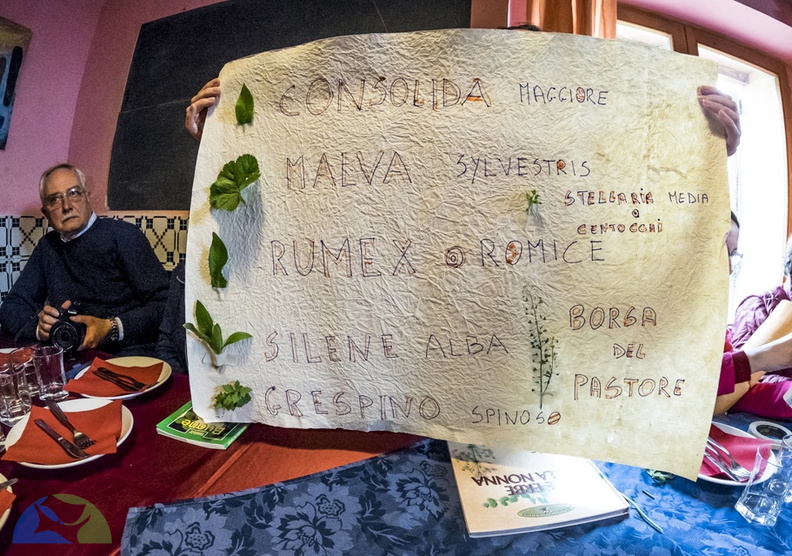 CONSOLIDA MAGGIORE
MALVA SYLVESTRIS
STELLARIA MEDIA
o
CENTOCCHI
RUMEX o ROMICE
SILENE ALBA
BORSA
DEL
PASTORE
GRESPINO SPINOSO
ERBE
LA NONNA